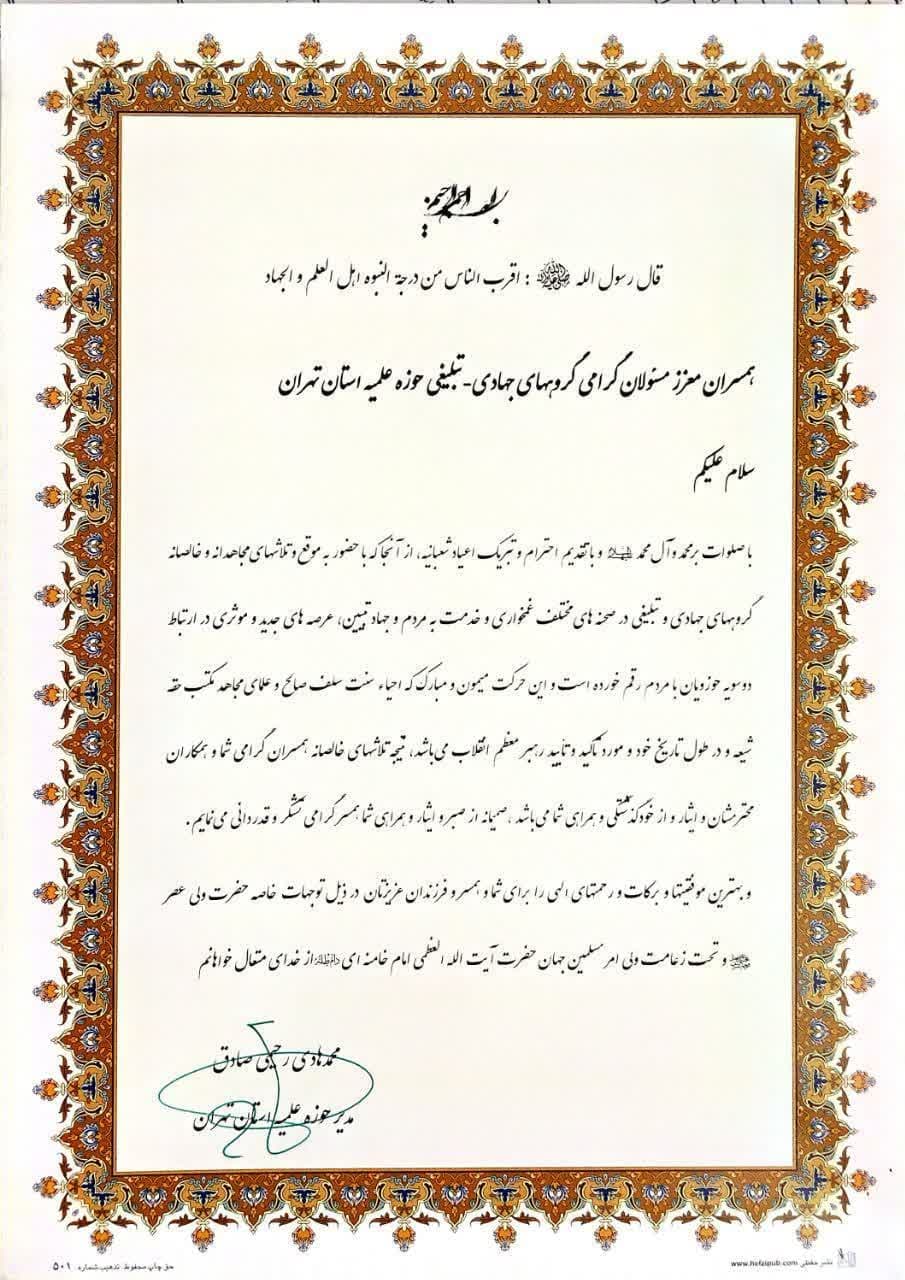 بسم الله الرحمن الرحیم
قال رسول الله ﷺ : اقرب الناس من درجة النبوه اهل العلم و الجهاد
همسران معزز مسئولان گرامی گروههای جهادی-تبلیغی حوزه علمیه استان تهران
سلام علیکم
با صلوات بر محمد و آل محمد و با تقدیم احترام و تبریک اعیاد شعبانیه، از آنجا که با حضور به موقع و تلاشهای مجاهدانه و خالصانه
گروههای جهادی و تبلیغی در صحنه های مختلف غمخواری و خدمت به مردم و جهاد تبیین، عرصه های جدید و موثری در ارتباط
دوسویه حوزویان با مردم رقم خورده است و این حرکت میمون و مبارک که احیاء سنت سلف صالح و علمای مجاهد مکتب حقه
شیعه و در طول تاریخ خود و مورد تأکید و تأیید رهبر معظم انقلاب می باشد، نتیجه تلاشهای خالصانه همسران گرامی شما و همکاران
محترمشان و ایثار و از خودگذشتگی و همراهی شما می باشد ، صمیمانه از صبر و ایثار و همراهی شما همسر گرامی تشکر و قدردانی می نمایم .
و بهترین موفقیتها و برکات و رحمتهای الهی را برای شما و همسر و فرزندان عزیزتان در ذیل توجهات خاصه حضرت ولی عصر
و تحت زعامت ولی امر مسلمین جهان حضرت آیت الله العظمی امام خامنه ای از خدای متعال خواهانم
محمدهادی رحیمی صادق
مدیر حوزه علمیه استان تهران
نشر حفظی www.hefzipub.com
حق چاپ محفوظ. تذهیب شماره ۵۰۱